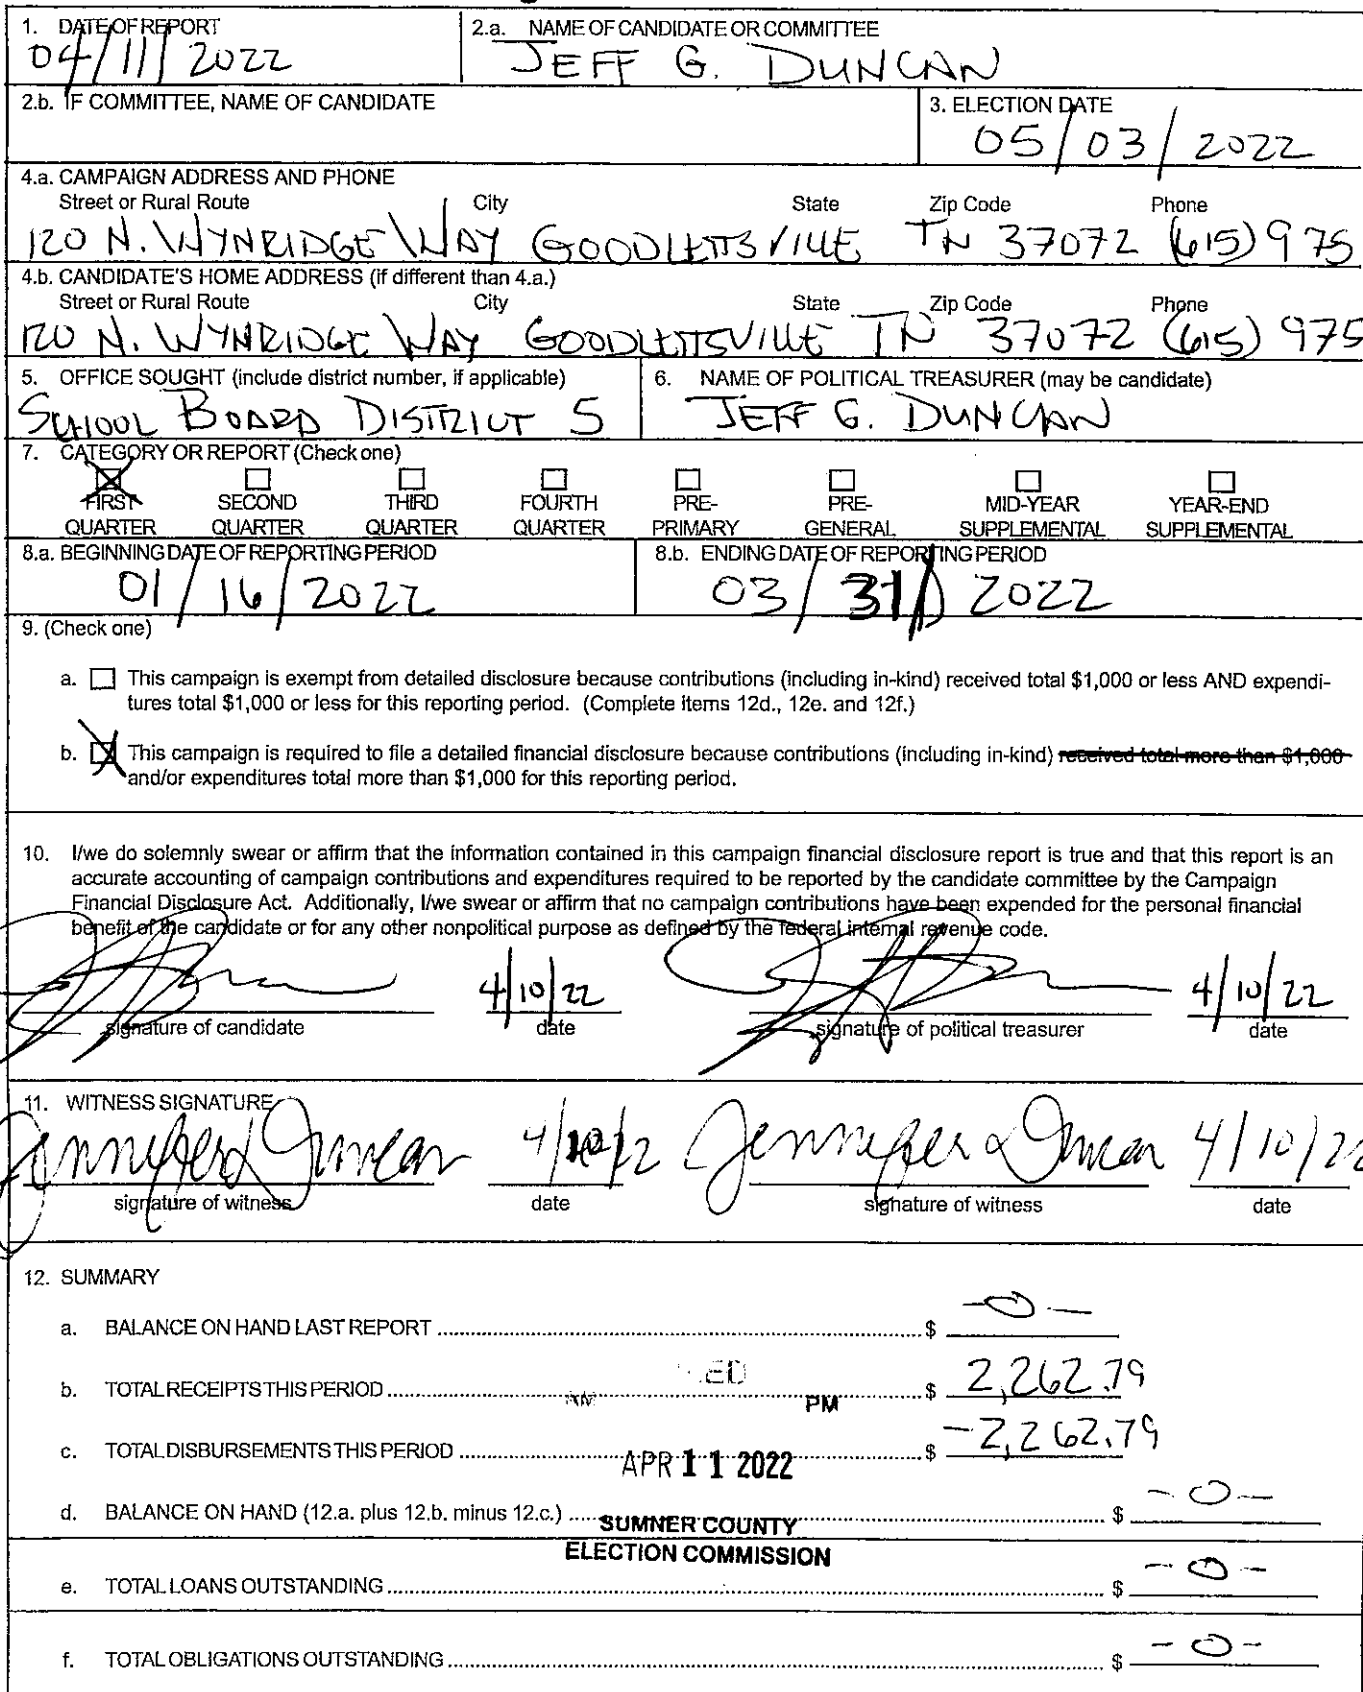 1. DATE OF REPORT
04/11/2022
2.a. NAME OF CANDIDATE OR COMMITTEE
JEFF G. DUNCAN
2.b. IF COMMITTEE, NAME OF CANDIDATE
3. ELECTION DATE
05/03/2022
4.a. CAMPAIGN ADDRESS AND PHONE
Street or Rural Route City State Zip Code Phone
120 N. WYNRIDGE WAY GOODLETTSVILLE TN 37072 (615) 975
4.b. CANDIDATE'S HOME ADDRESS (if different than 4.a.)
Street or Rural Route City State Zip Code Phone
120 N. WYNRIDGE WAY GOODLETTSVILLE TN 37072 (615) 975
5. OFFICE SOUGHT (include district number, if applicable)
SCHOOL BOARD DISTRICT 5
6. NAME OF POLITICAL TREASURER (may be candidate)
JEFF G. DUNCAN
7. CATEGORY OR REPORT (Check one)
FIRST QUARTER
SECOND QUARTER
THIRD QUARTER
FOURTH QUARTER
PRE-PRIMARY
PRE-GENERAL
MID-YEAR SUPPLEMENTAL
YEAR-END SUPPLEMENTAL
8.a. BEGINNING DATE OF REPORTING PERIOD
01/16/2022
8.b. ENDING DATE OF REPORTING PERIOD
03/31/2022
9. (Check one)
a. This campaign is exempt from detailed disclosure because contributions (including in-kind) received total $1,000 or less AND expendi-
tures total $1,000 or less for this reporting period. (Complete items 12d., 12e. and 12f.)
b. This campaign is required to file a detailed financial disclosure because contributions (including in-kind) received total more than $1,000
and/or expenditures total more than $1,000 for this reporting period.
10. I/we do solemnly swear or affirm that the information contained in this campaign financial disclosure report is true and that this report is an
accurate accounting of campaign contributions and expenditures required to be reported by the candidate committee by the Campaign
Financial Disclosure Act. Additionally, I/we swear or affirm that no campaign contributions have been expended for the personal financial
benefit of the candidate or for any other nonpolitical purpose as defined by the federal internal revenue code.
4/10/22 4/10/22
signature of candidate date signature of political treasurer date
11. WITNESS SIGNATURE
Jennifer Duncan Jennifer Duncan 4/10/22
signature of witness date signature of witness date
12. SUMMARY
a. BALANCE ON HAND LAST REPORT $ -0-
b. TOTAL RECEIPTS THIS PERIOD $ 2,262.79
PM
c. TOTAL DISBURSEMENTS THIS PERIOD $ -2,262.79
APR 11 2022
d. BALANCE ON HAND (12.a. plus 12.b. minus 12.c.) $ -0-
SUMNER COUNTY
ELECTION COMMISSION
e. TOTAL LOANS OUTSTANDING $ -0-
f. TOTAL OBLIGATIONS OUTSTANDING $ -0-